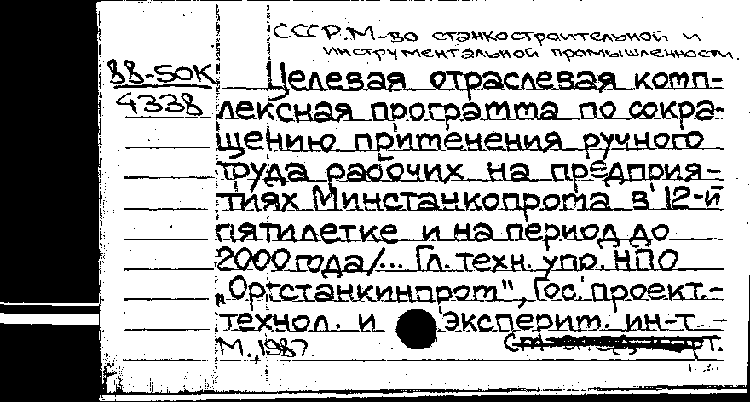 СССР. М-во станкостроительной и
инструментальной промышленности.
88-50К
4338
Целевая отраслевая комп-
лексная программа по сокра-
щению применения ручного
труда рабочих на предприя-
тиях Минстанкопрома в 12-й
пятилетке и на период до
2000 года/... Гл. техн. упр. НПО
„Оргстанкинпром", Гос. проект.-
технол. и эксперим. ин-т
М., 1987